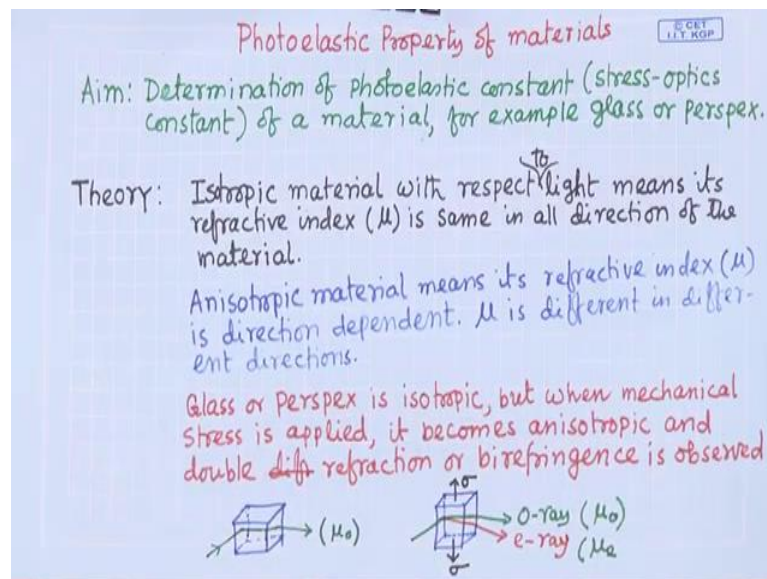 Photoelastic Property of materials
© CET
I.I.T. KGP
Aim: Determination of Photoelastic constant (stress-optics
constant) of a material, for example glass or perspex.
to
Theory: Istropic material with respect light means its
refractive index (μ) is same in all direction of the
material.
Anisotropic material means its refractive index (μ)
is direction dependent. μ is different in differ-
ent directions.
Glass or perspex is isotropic, but when mechanical
stress is applied, it becomes anisotropic and
double diff refraction or birefringence is observed
σ
(μo)
o-ray (μo)
e-ray (μe
σ